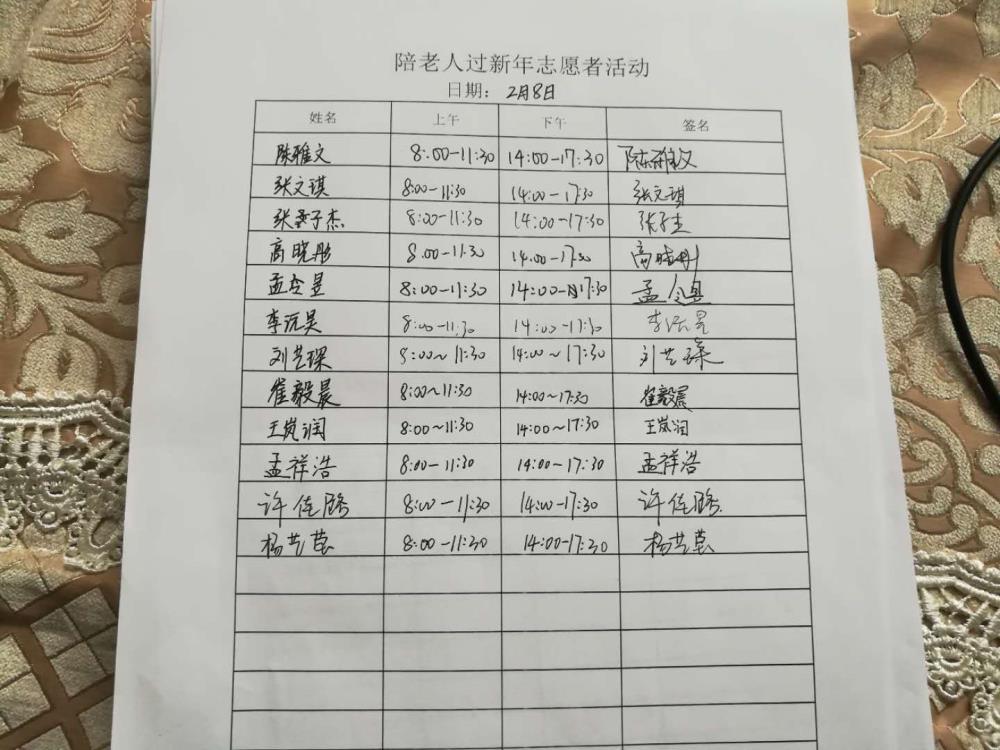 陪老人过新年志愿者活动
日期: 2月8日
姓名 上午 下午 签名
陈雅文 8:00-11:30 14:00-17:30 陈雅文
张文琪 8:00-11:30 14:00-17:30 张文琪
张子杰 8:00-11:30 14:00-17:30 张子杰
高晓彤 8:00-11:30 14:00-17:30 高晓彤
孟令昱 8:00-11:30 14:00-17:30 孟令昱
李沅昊 8:00-11:30 14:00-17:30 李沅昊
刘艺琛 8:00~11:30 14:00~17:30 刘艺琛
崔毅晨 8:00~11:30 14:00~17:30 崔毅晨
王岚润 8:00~11:30 14:00~17:30 王岚润
孟祥浩 8:00-11:30 14:00-17:30 孟祥浩
许佳璐 8:00-11:30 14:00-17:30 许佳璐
杨艺 8:00-11:30 14:00-17:30 杨艺